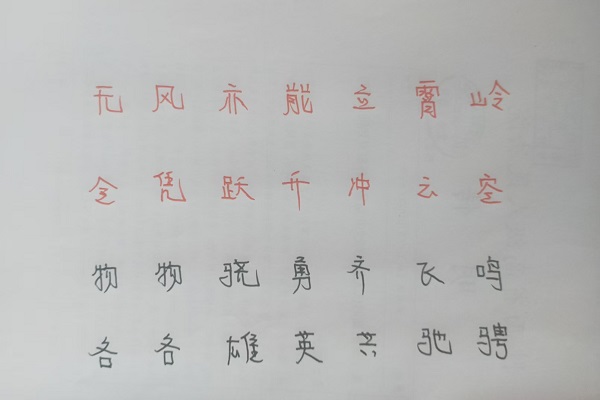 无风亦能立霄岭
全凭跃升冲云空
物物骁勇齐飞鸣
各各雄英共驰骋